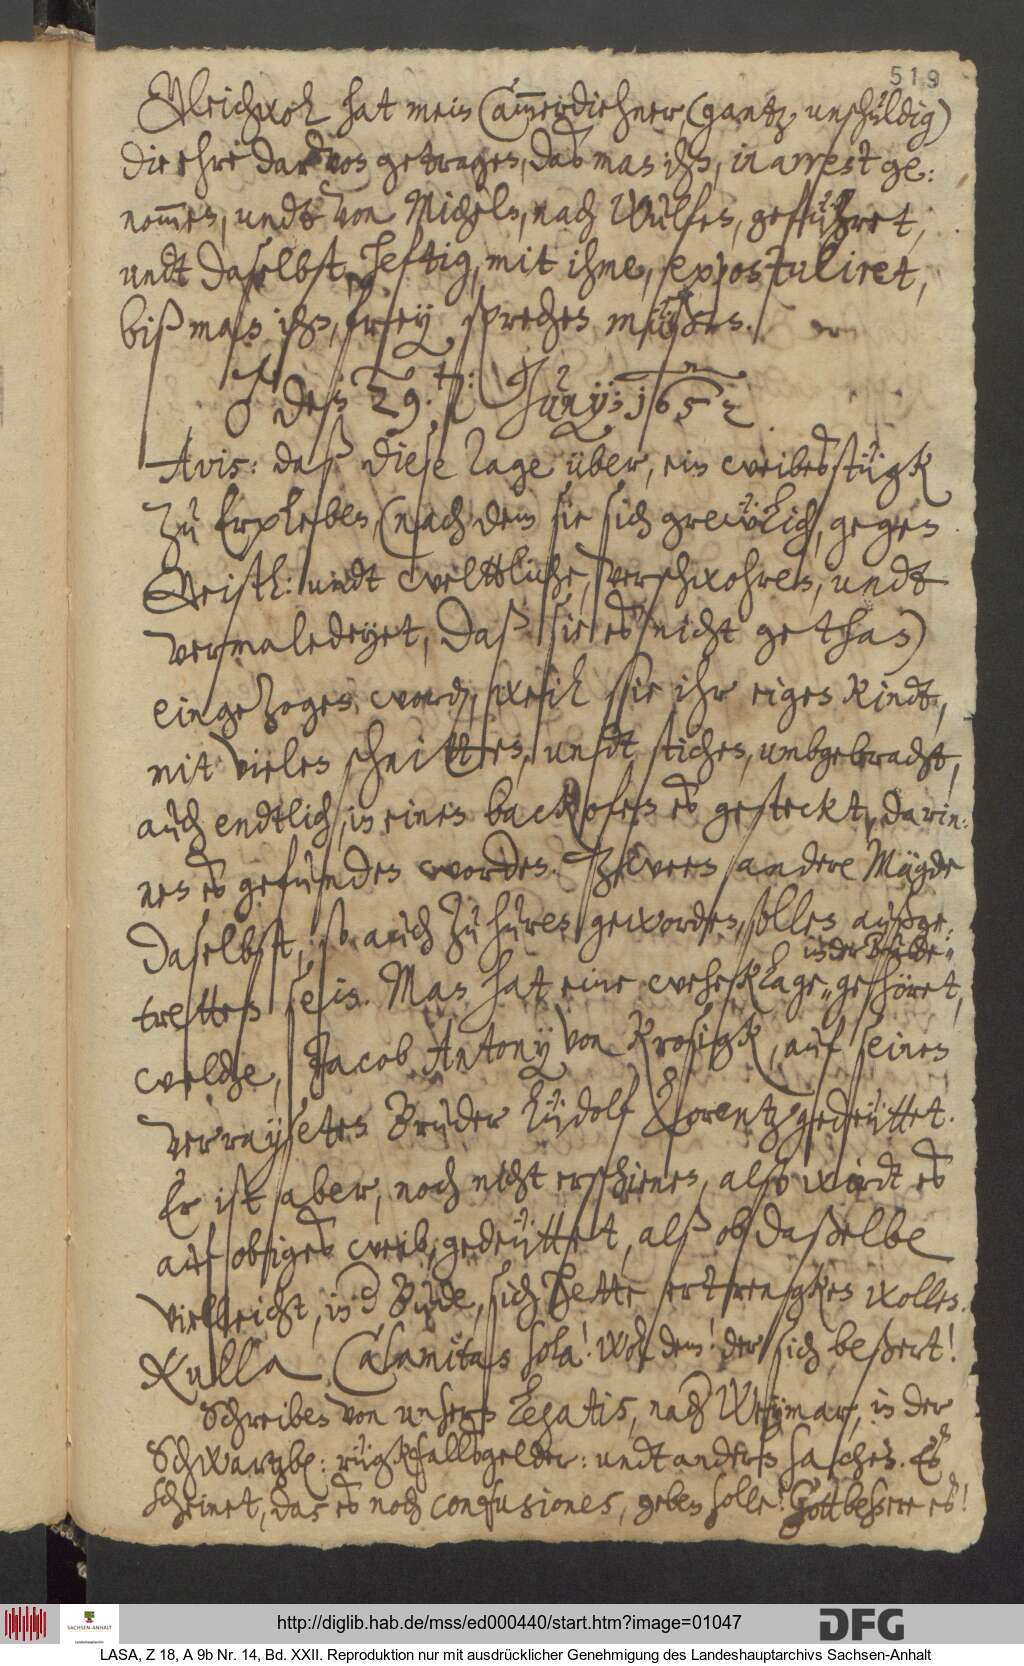 519
Gleichwol hat mein Cam̅erdiehner, (gantz unschuldig)
die ehre dardvon getragen, daß man ihn, in arrest ge:
nom̅en, undt von Micheln, nach Wülfen, geführet,
undt daselbst, heftig, mit ihme, expostuliret,
biß man ihn, frey sprechen müßen.
♂ den 29. t: Junij; 1652
Avis: daß diese Tage über, ein weibesstügk
zu Erxleben, (nach dem sie sich grewlich, gegen
Geistl: undt weltliche, verschwohren, undt
vermaledeyet, daß sie es nicht gethan)
eingezogen, word, weil sie ihr eigen Kindt,
mit vielen schnitten, undt stichen, umbgebracht,
auch endtlich, in einen backofen es gesteckt, darin:
nen es gefunden worden. Zweene andere Mägde
daselbst, so auch zu huren geworden, sollen außge:
in der Bude"
tretten sein. Man hat eine wehklage" gehöret,
welche, Jacob Antony von Krosigk, auf seinen
verrayseten Bruder Ludolf Lorentz gedeüttet.
Er ist aber, noch nicht erschienen, also wirdt es
auf obiges weib, gedeüttet, alß ob daßelbe
vielleicht, in d Bude, sich hette ertrengken wollen.
Nulla Calamitas sola! Wol dem! der sich beßert!
Schreiben von unsern Legatis, nach Weymar, in der
Schwartzb: rügkfallsgelder: undt andern sachen. Es
scheinet, das es noch confusiones, geben solle! Gott beßere es!
http://diglib.hab.de/mss/ed000440/start.htm?image=01047
SACHSEN-ANHALT
DFG
LASA, Z 18, A 9b Nr. 14, Bd. XXII. Reproduktion nur mit ausdrücklicher Genehmigung des Landeshauptarchivs Sachsen-Anhalt